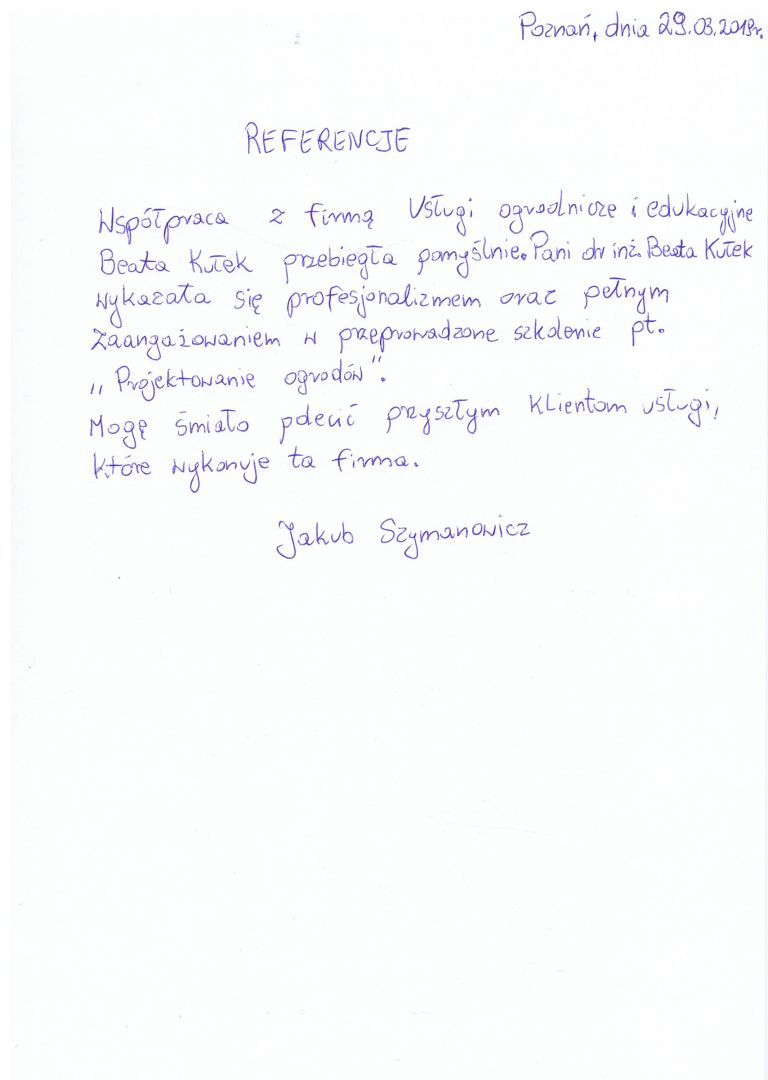 Poznań, dnia 29.03.2019r.
REFERENCJE
Współpraca z firmą Usługi ogrodnicze i edukacyjne
Beata Kułek przebiegła pomyślnie. Pani dr inż. Beata Kułek
wykazała się profesjonalizmem oraz pełnym
zaangażowaniem w przeprowadzone szkolenie pt.
„Projektowanie ogrodów".
Mogę śmiało polecić przyszłym klientom usługi,
które wykonuje ta firma.
Jakub Szymanowicz